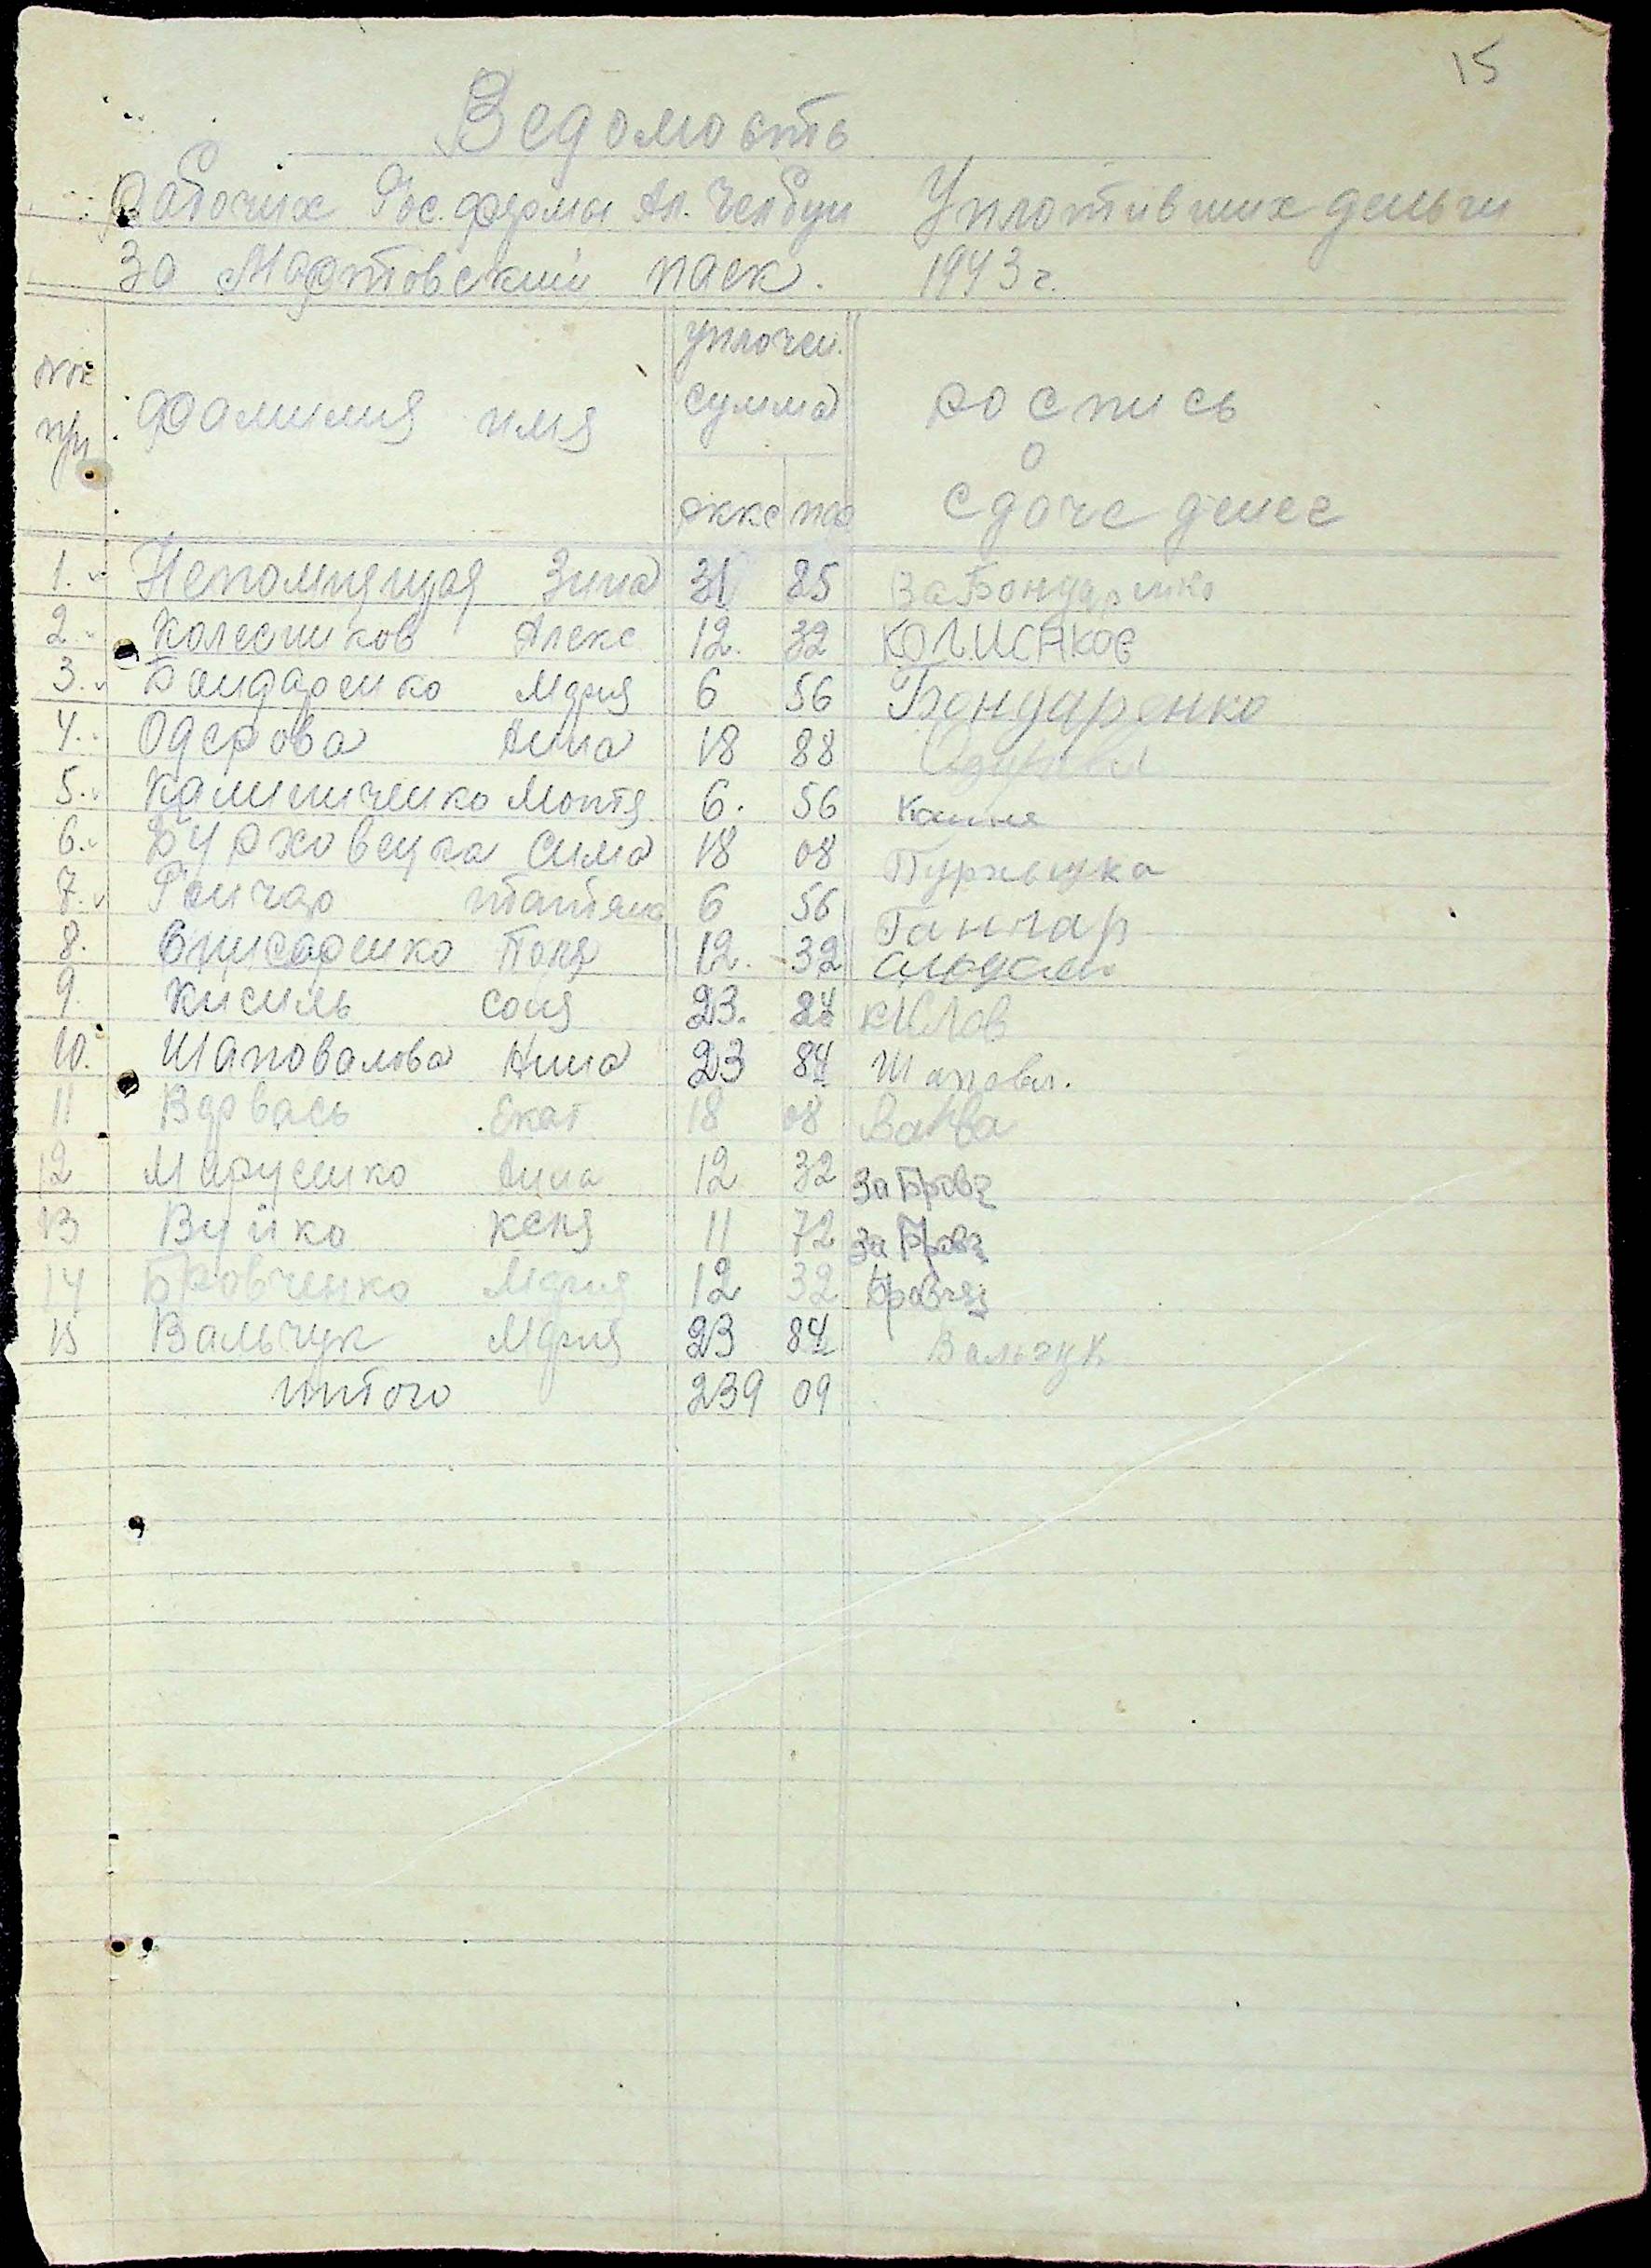 15
Ведомость
Рабочих Гос. фермы Ал. Челбуи Уплативших деньги
За Мартовский паек. 1943 г.
№№ пп фамилия имя уплочен. сумма роспись о сдаче денег
пф
1. Непомнящая Зина 31 85 За Бондаренко
2. Колесников Алекс 12. 32 КОЛИСНКОВ
3. Бондаренко Мария 6 56 Бондаренко
4. Одерова Анна 18 88
5. Калиниченко Мотя 6. 56
6. Бурховецка Сима 18 08
7. Гончар Татяна 6 56 Ганчар
8. Поля 12. 32
9. Кисиль Соня 23. 84
10. Шаповалова Нина 23 84 Шаповл.
11 Екат 18 08
12 Марусенко Анна 12 32 За Бровч
13 Вуйко Ксня 11 72 За Бровч
14 Бровченко Мария 12 32
15 Вальчук Мария 23 84 Вальчук
итого 239 09